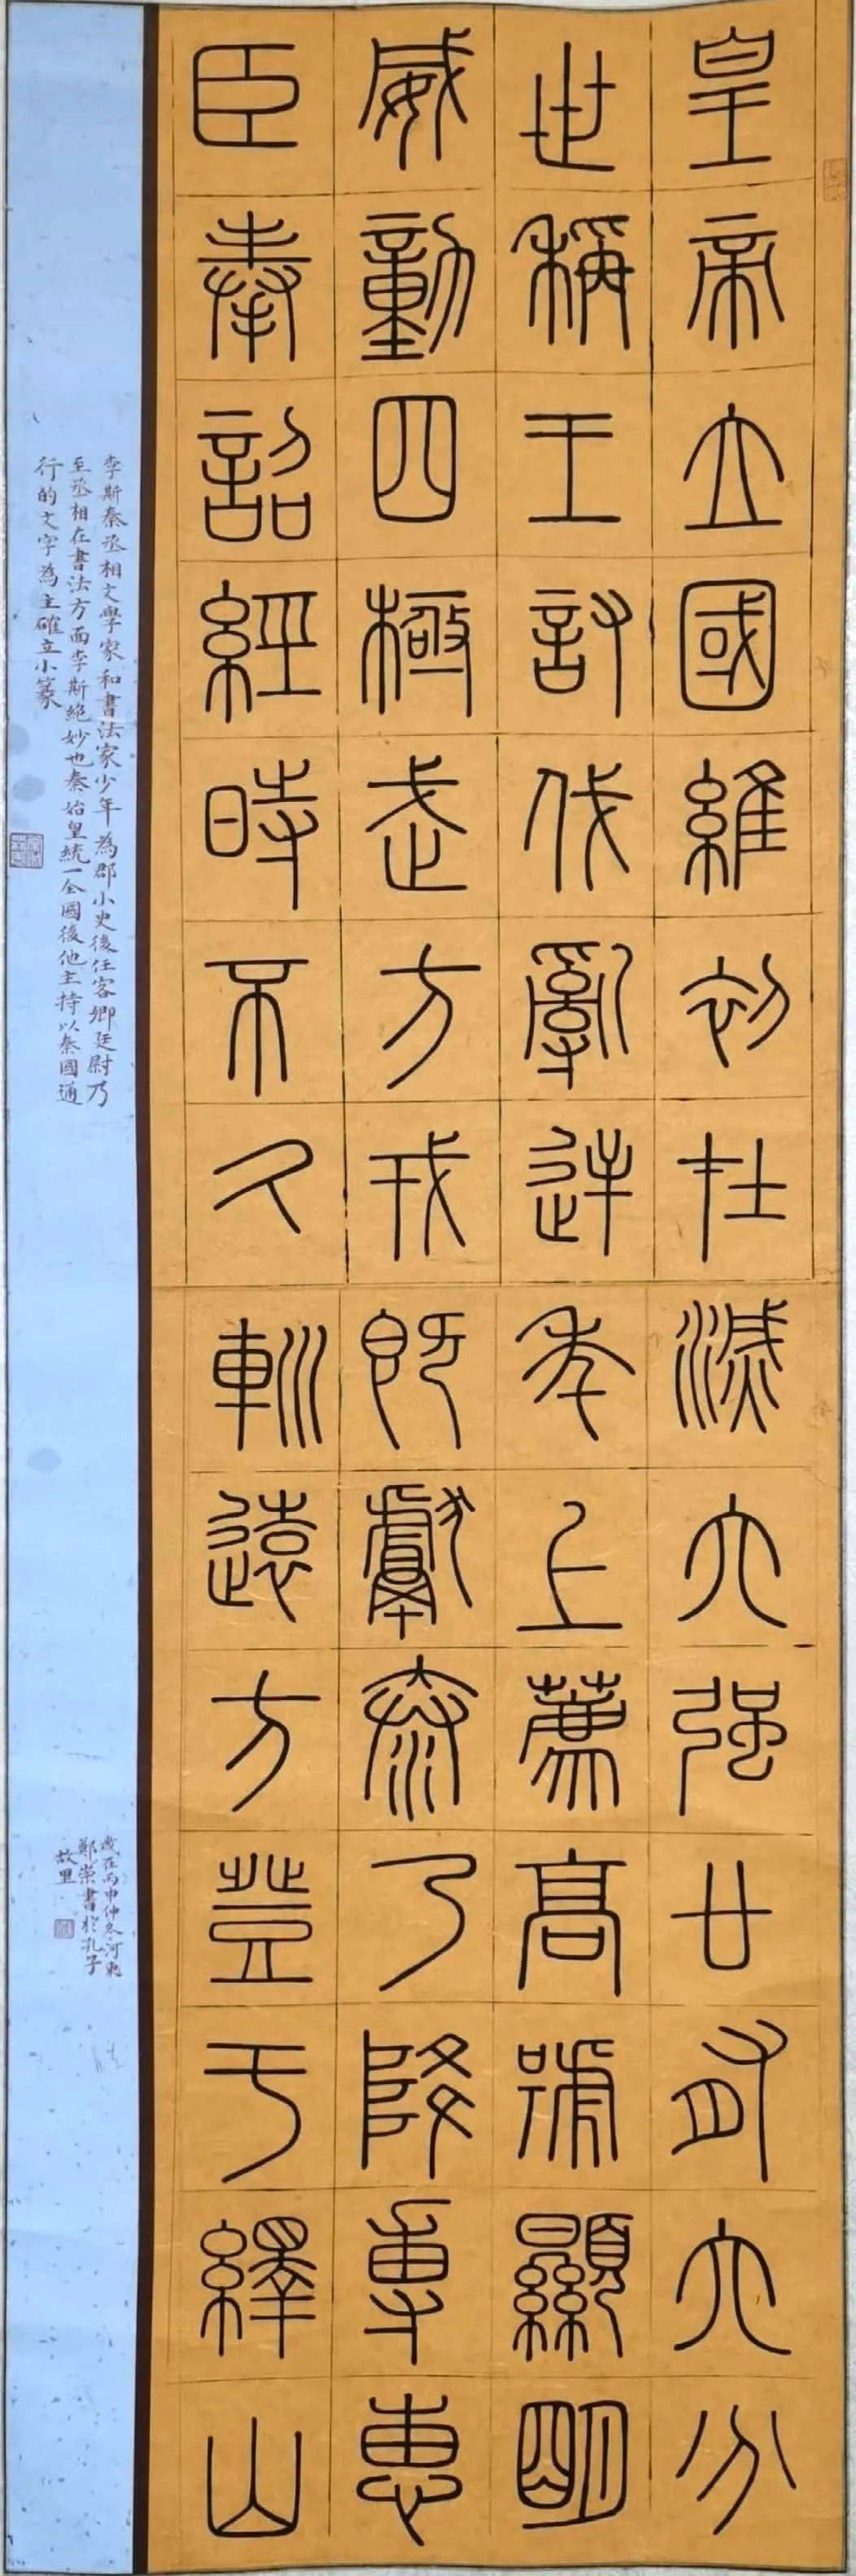 皇帝立國維初在滅六强廿有六分
世稱王討伐亂逆年上薦高號顯明
威動四極武方戎既獻泰乃降專惠
臣奉詔經時不久巡遠方登于繹山
李斯秦丞相文學家和書法家少年為郡小史後任客卿廷尉乃
至丞相在書法方面李斯絕妙也秦始皇統一全國後他主持以秦國通
行的文字為主確立小篆
歲在丙申仲冬河東
鄭榮書於孔子
故里